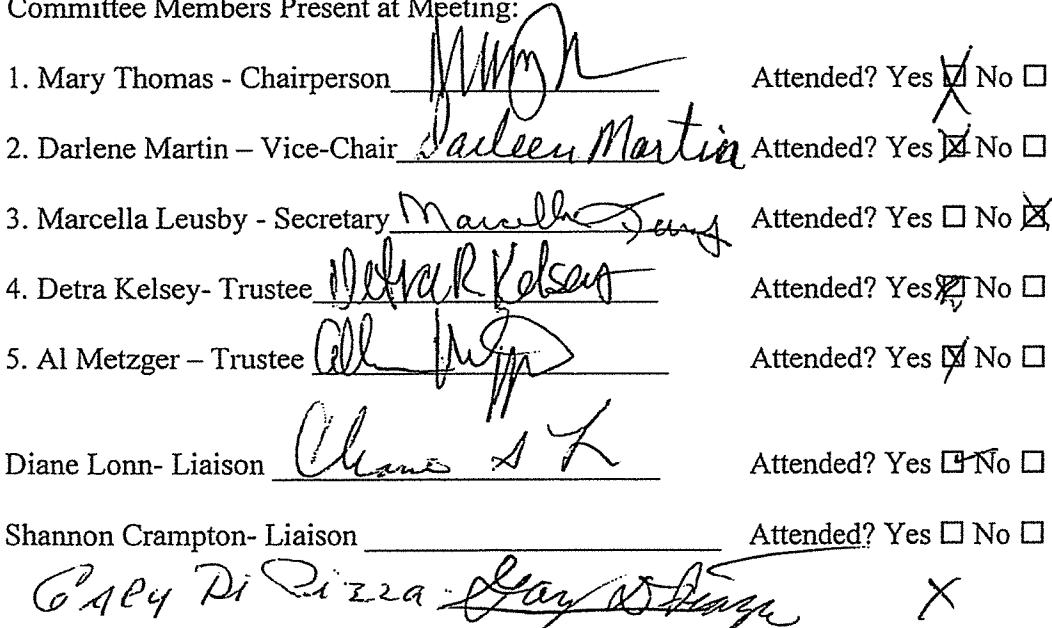 Committee Members Present at Meeting:
1. Mary Thomas - Chairperson Attended? Yes ☒ No ☐
2. Darlene Martin – Vice-Chair Darleen Martin Attended? Yes ☒ No ☐
3. Marcella Leusby - Secretary Marcella Attended? Yes ☐ No ☒
4. Detra Kelsey- Trustee Detra R Kelsey Attended? Yes ☒ No ☐
5. Al Metzger – Trustee Attended? Yes ☒ No ☐
Diane Lonn- Liaison Attended? Yes ☑ No ☐
Shannon Crampton- Liaison Attended? Yes ☐ No ☐
Gary Di Pizza - Gary X